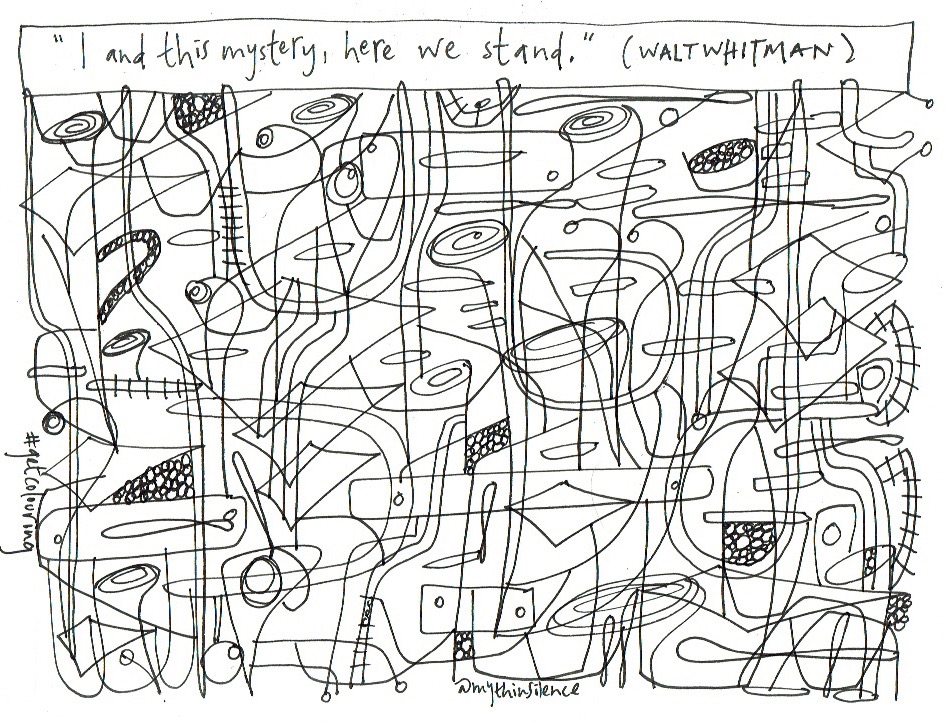 "I and this mystery, here we stand." (WALT WHITMAN)
#getcolouring
@mythinsilence